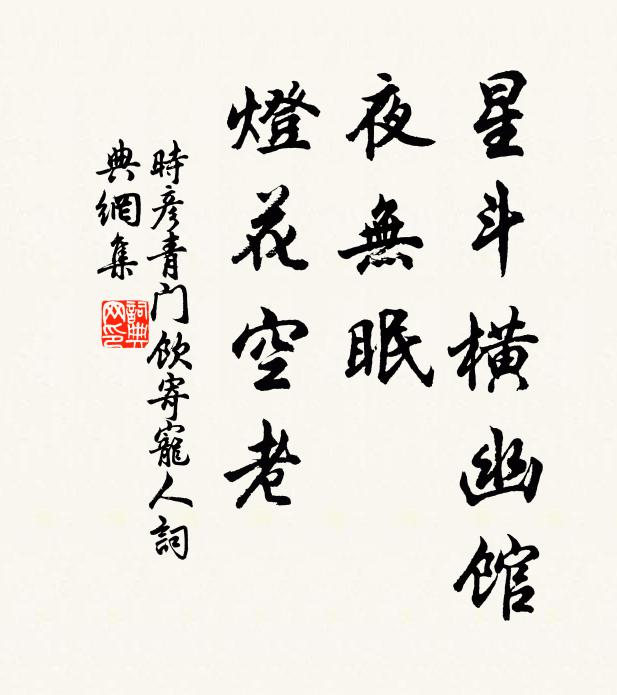 星斗橫幽馆
夜無眠
燈花空老
時彦青门饮寄寵人詞
典網集
詞典网印